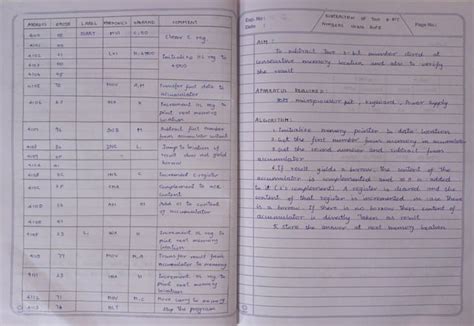 ADDRESS OPCODE LABEL MNEMONICS OPERAND COMMENT
4100 START MVI C, 00 Clear C reg
4102 LXI H, 4500 Initialize HL reg to
4500
4105 7E MOV A, M Transfer first data to
accumulator
4106 23 INX H Increment HL reg to
point next memory
location
4107 96 SUB M Subtract first number
from accumulator content
4108 JNC Jump to location if
result does not yield
borrow
INR C Increment C register
CMA Complement the
content
ADI Add 01 to content
of accumulator
INX H Increment HL reg to
point next memory location
4110 77 MOV M, A Transfer result from
accumulator to memory
4111 23 INX H Increment HL reg to
point next memory
location
4112 71 MOV M, C Move carry to memory
4113 76 HLT Stop the program
Exp. No:
Date :
SUBTRACTION OF TWO 8-BIT
NUMBERS USING 8085
Page No:
AIM:
To subtract two 8-bit number stored at
consecutive memory location and also to verify
the result
APPARATUS REQUIRED:
8085 microprocessor kit, keyboard, Power Supply
ALGORITHM:
1. Initialize memory pointer to data location
2. Get the first number from memory in accumulator
3. Get the second number and subtract from
accumulator
4. If result yields a borrow, the content of the
accumulator is complemented and 01 H is added
to it (2's complement). A register is cleared and the
content of that register is incremented in case there
is a borrow. If there is no borrow then content of
accumulator is directly taken as result
5. Store the answer at next memory location